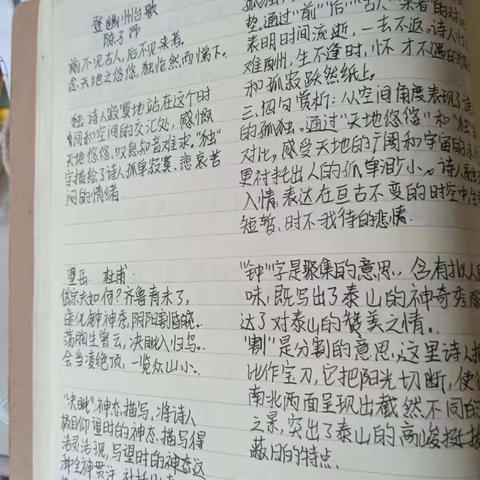 登幽州台歌
陈子昂
前不见古人,后不见来者。
念天地之悠悠,独怆然而悌下。
独:诗人寂寞地站在这个时
间和空间的交汇处,感慨
天地悠悠,叹息知音难求。"独"
字描绘了诗人孤单寂寞、悲哀苦
闷的情绪
望岳 杜甫
岱宗夫如何?齐鲁青未了,
造化钟神秀,阴阳割昏晓。
荡胸生曾云,决眦入归鸟。
会当凌绝顶,一览众山小。
"决眦":神态描写,将诗人
极目仰望时的神态描写得
活灵活现,写望时的神态这
望。通过"前""后""古人""来者"的对
表明时间流逝,一去不返。诗人
难刚州,生不逢时,怀才不遇的
和孤寂跃然纸上。
三、四句赏析:从空间角度表现了诗
的孤独。通过"天地悠悠"和"独
对比,感受天地的广阔和宇宙的
更衬托出人的孤单渺小。诗人
入情,表达在亘古不变的时空中,
短暂、时不我待的悲情.
"钟"字是聚集的意思,含有拟人
味,既写出了泰山的神奇秀
达了对泰山的赞美之情。
"割"是分割的意思,这里诗人
比作宝刀,它把阳光切断,使
南北两面呈现出截然不同的
之景,突出了泰山的高峻挺拔
蔽日的特点.